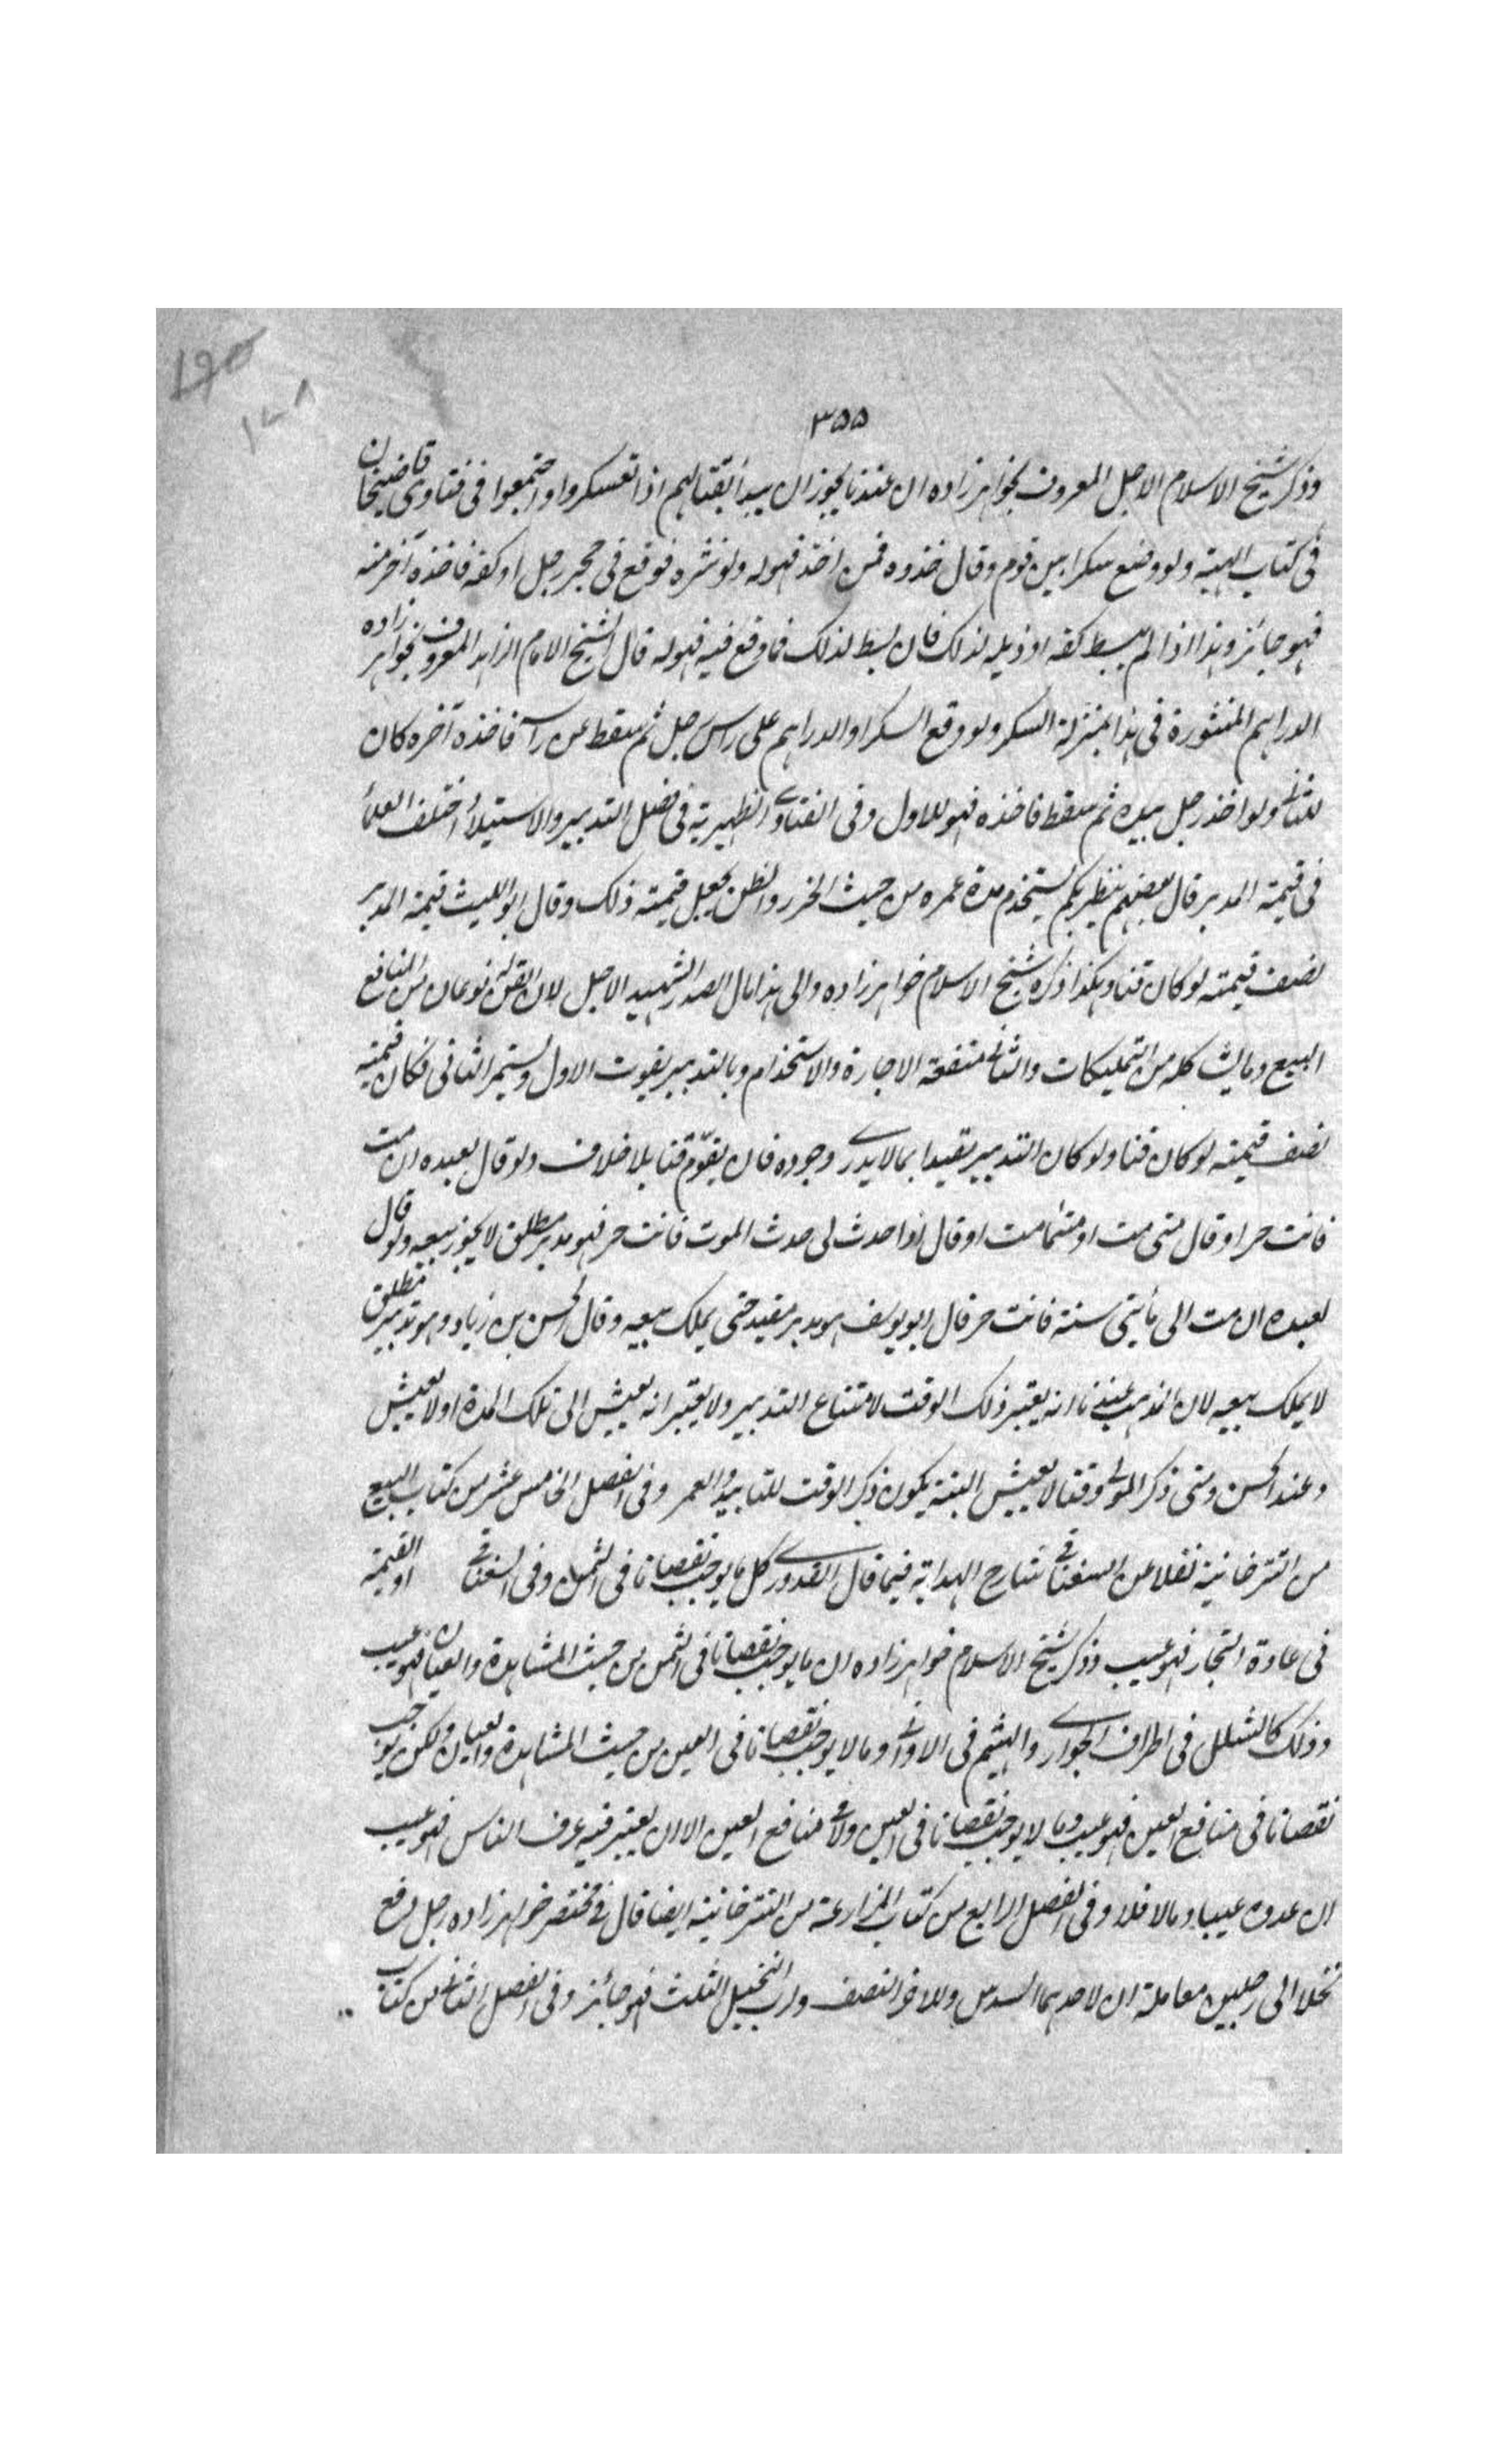 ١٩٥
١٤٨
٣٥٥
وذكر شيخ الاسلام الاجل المعروف بخواهرزاده ان عندنا يجوز ان يبدأ بقتالهم اذا تعسكروا واجتمعوا فى فتاوى قاضيخان
فى كتاب الهبة ولو وضع سكرا بين قوم وقال خذوه فمن اخذ فهو له ولو نثره فوقع فى حجر رجل او كفه فاخذه آخر منه
فهو جائز وهذا اذا لم يبسط كفه او ذيله لذلك فان بسط لذلك فما وقع فيه فهو له قال الشيخ الامام الزاهد المعروف بخواهرزاده
الدراهم المنثورة فى هذا بمنزلة السكر ولو وقع السكر او الدراهم على راس رجل ثم سقط عن راسه فاخذه آخره كان
للثانى ولو اخذ رجل بيده ثم سقط فاخذه فهو للاول وفى الفتاوى الظهيرية فى فصل التدبير والاستيلاء اختلف العلماء
فى قيمة المدبر قال بعضهم ينظر بكم يستخدم مدة عمره من حيث الحزر والظن يجعل قيمته ذلك وقال ابو الليث قيمة المدبر
نصف قيمته لو كان قنا وهكذا ذكره شيخ الاسلام خواهرزاده والى هذا مال الصدر الشهيد الاجل لان للقن نوعان من المنافع
البيع وما يشاكله من التمليكات والثانى منفعة الاجارة والاستخدام وبالتدبير يفوت الاول ويستمر الثانى فكان قيمته
نصف قيمته لو كان قنا ولو كان التدبير مقيدا بما لا يدرى وجوده فان يقوّم قنا بلا خلاف ولو قال لعبده ان مت
فانت حر او قال متى مت او متى ما مت او قال اذا حدث لى حدث الموت فانت حر فهو مدبر مطلق لا يجوز بيعه ولو قال
لعبده ان مت الى مأيتى سنة فانت حر قال ابو يوسف هو مدبر مقيد حتى يملك بيعه وقال الحسن بن زياد وهو تدبير مطلق
لا يملك بيعه لان المذهب عندنا انه يعتبر ذلك الوقت لامتناع التدبير ولا يعتبر انه يعيش الى تلك المدة او لا يعيش
وعند الحسن ومتى ذكر المولى وقتا لا يعيش البتة يكون ذكر الوقت للتابيد والعمر وفى الفصل الخامس عشر من كتاب البيع
من التترخانية نقلا عن السغناقى شارح الهداية فيما قال القدورى كل ما يوجب نقصانا فى الثمن وفى السغناقى او القيمة
فى عادة التجار فهو عيب وذكر شيخ الاسلام خواهرزاده ان ما يوجب نقصانا فى الثمن من حيث المشاهدة والعيان فهو عيب
وذلك كالشلل فى اطراف الجوارى والهشم فى الاوانى وما لا يوجب نقصانا فى العين من حيث المشاهدة والعيان ولكن يوجب
نقصانا فى منافع العين فهو عيب وما لا يوجب نقصانا فى العين ولا فى منافع العين الا ان يعتبر فيه عرف الناس فهو عيب
ان عدوه عيبا وما لا فلا وفى الفصل الرابع من كتاب المزارعة من التترخانية ايضا قال فى مختصر خواهرزاده رجل دفع
نخلا الى رجلين معاملة ان لاحدهما السدس وللاخر النصف ولرب النخيل الثلث فهو جائز وفى الفصل الثانى من كتاب